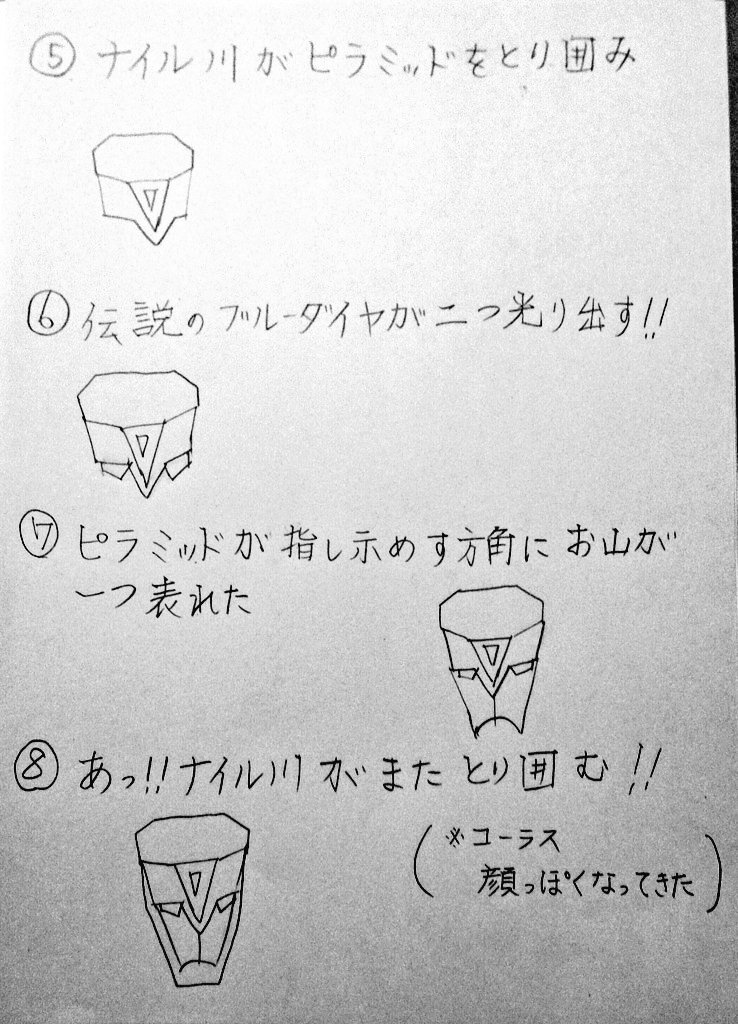 ⑤ ナイル川がピラミッドをとり囲み
⑥ 伝説のブルーダイヤが二つ光り出す!!
⑦ ピラミッドが指し示めす方角にお山が
一つ表れた
⑧ あっ!!ナイル川がまたとり囲む!!
(※コーラス
顔っぽくなってきた)